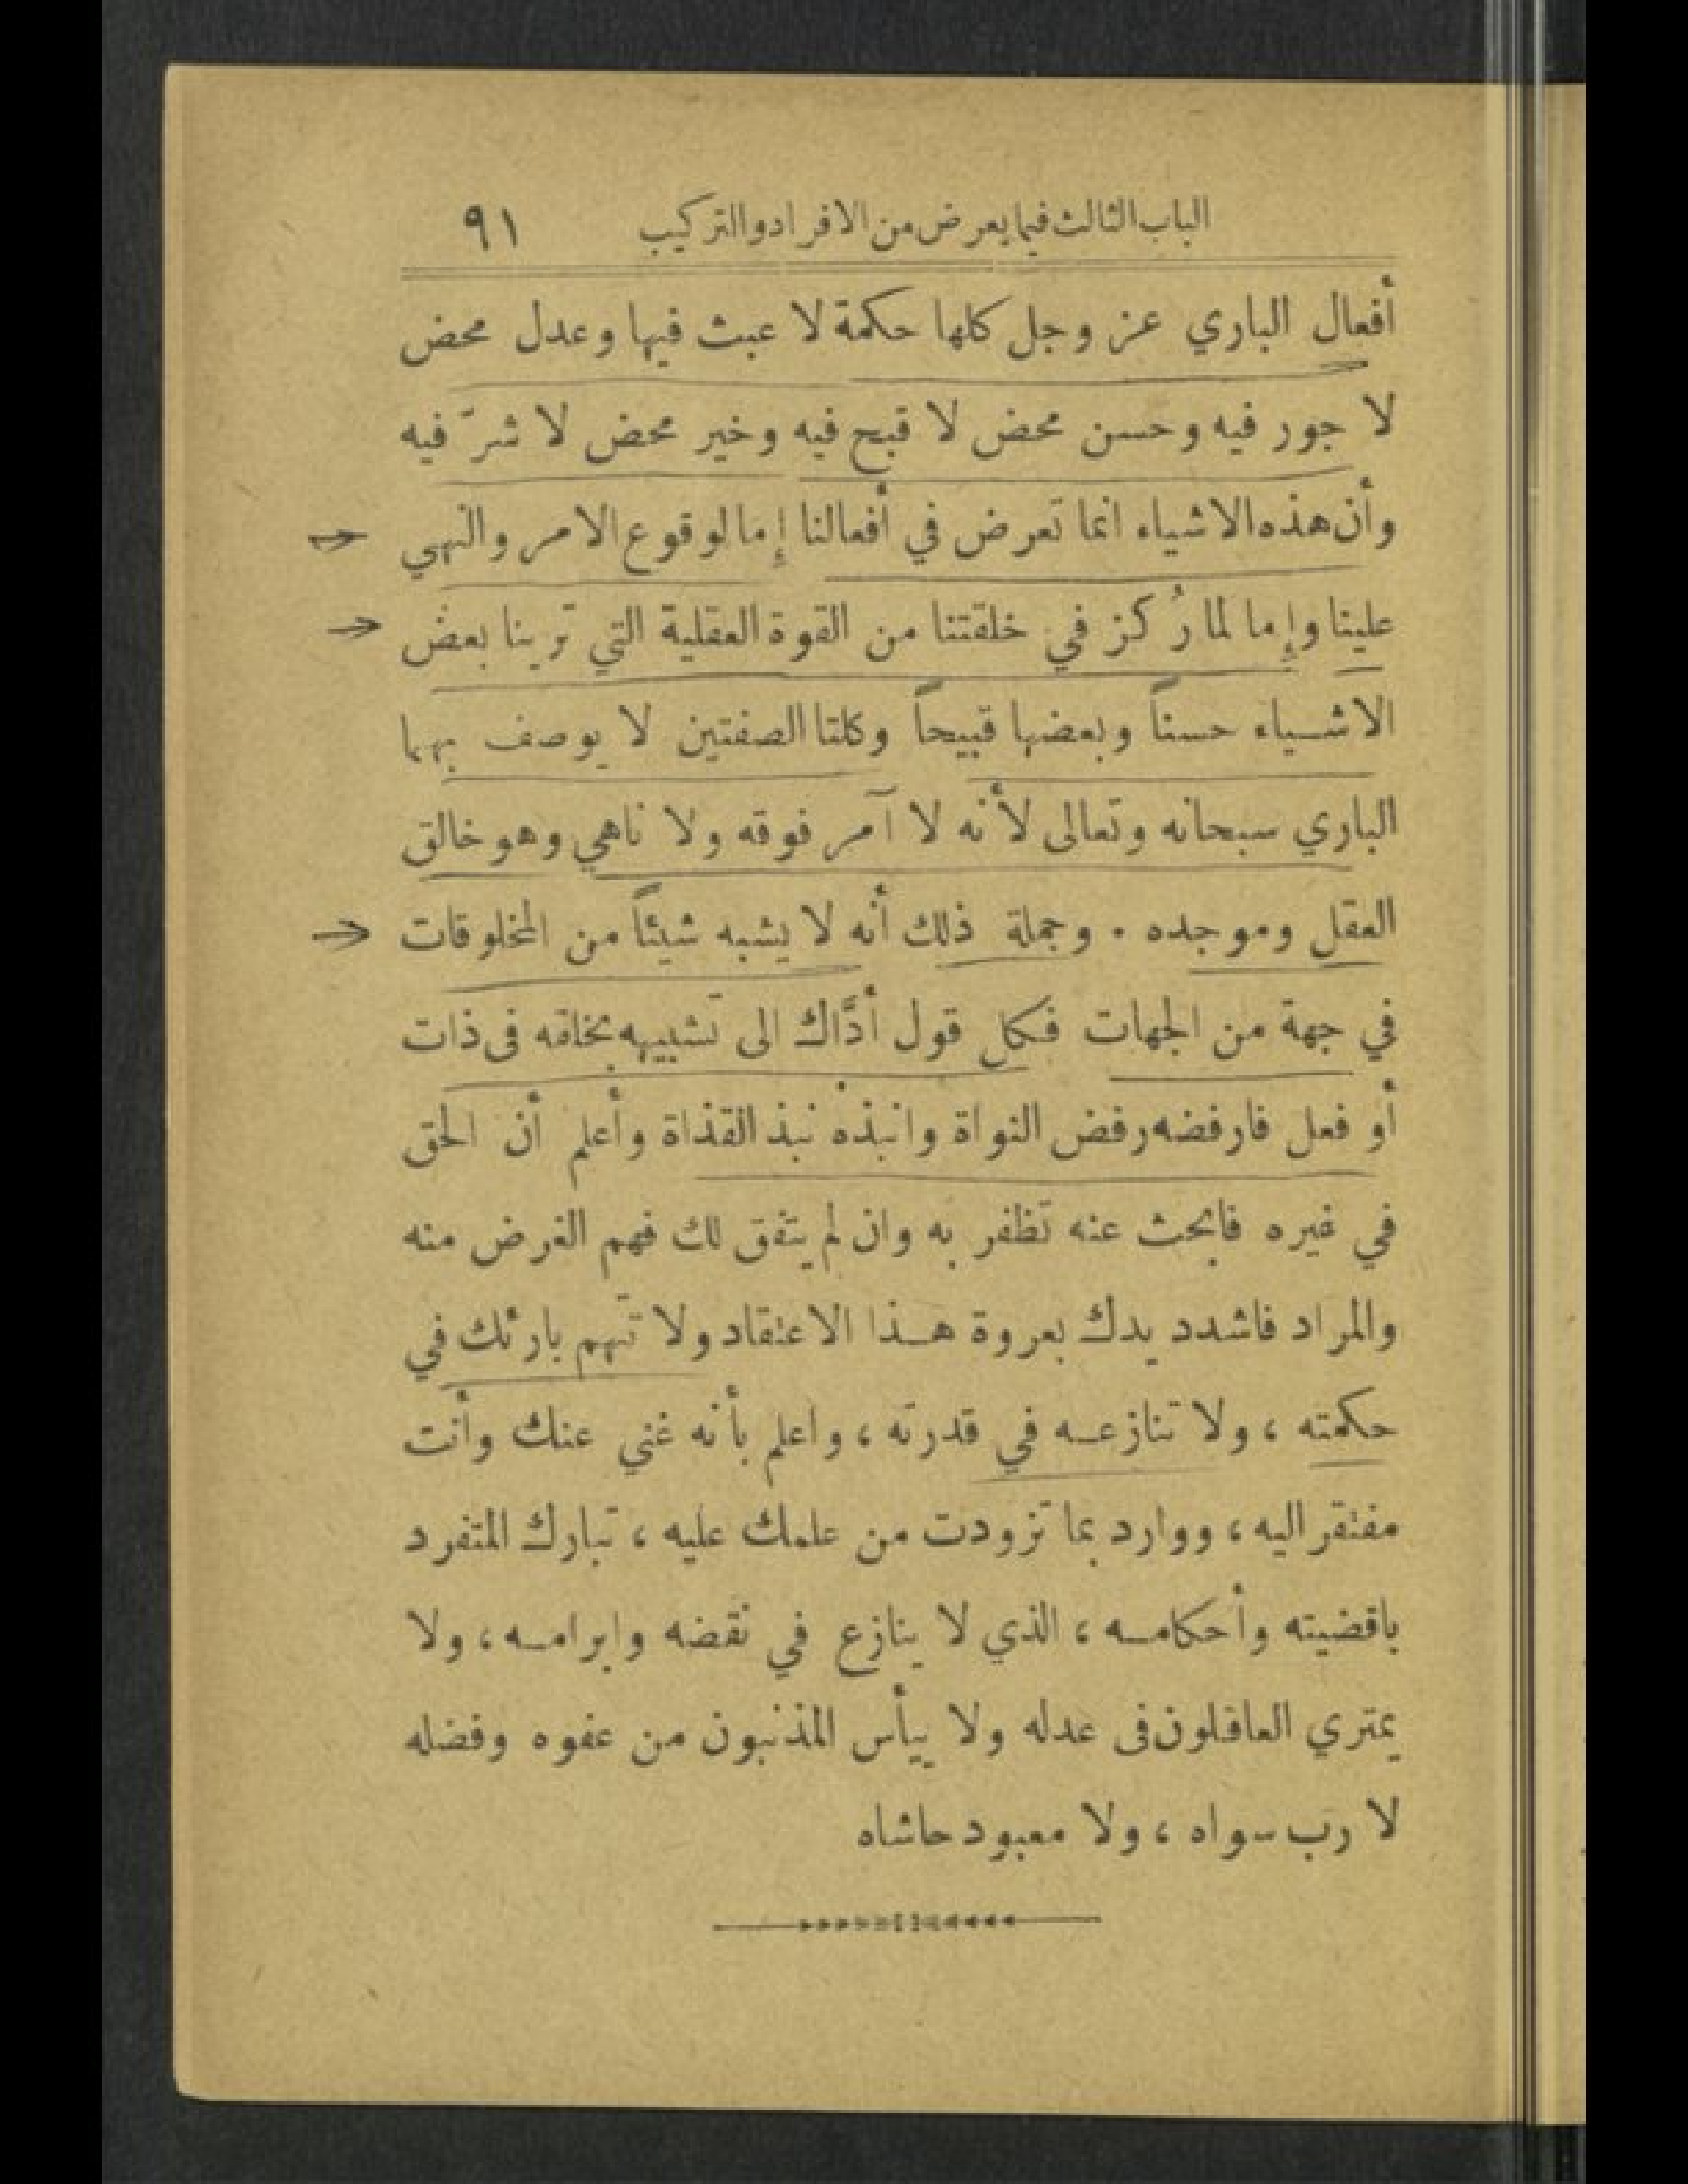 الباب الثالث فيما يعرض من الافراد والتركيب ٩١
أفعال الباري عز وجل كلها حكمة لا عبث فيها وعدل محض
لا جور فيه وحسن محض لا قبح فيه وخير محض لا شرّ فيه
وأن هذه الاشياء انما تعرض في أفعالنا إما لوقوع الامر والنهي
علينا وإما لما رُكز في خلقتنا من القوة العقلية التي ترينا بعض
الاشياء حسناً وبعضها قبيحاً وكلتا الصفتين لا يوصف بهما
الباري سبحانه وتعالى لأنه لا آمر فوقه ولا ناهي وهو خالق
العقل وموجده . وجملة ذلك أنه لا يشبه شيئاً من المخلوقات
في جهة من الجهات فكل قول أدَّاك الى تشبيهه بخلقه فى ذات
أو فعل فارفضه رفض النواة وانبذه نبذ القذاة وأعلم أن الحق
في غيره فابحث عنه تظفر به وان لم يتفق لك فهم الغرض منه
والمراد فاشدد يدك بعروة هذا الاعتقاد ولا تتهم بارئك في
حكمته ، ولا تنازعه في قدرته ، واعلم بأنه غني عنك وأنت
مفتقر اليه ، ووارد بما تزودت من علمك عليه ، تبارك المتفرد
باقضيته وأحكامه ، الذي لا ينازع في نقضه وابرامه ، ولا
يمتري العاقلون فى عدله ولا ييأس المذنبون من عفوه وفضله
لا رب سواه ، ولا معبود حاشاه